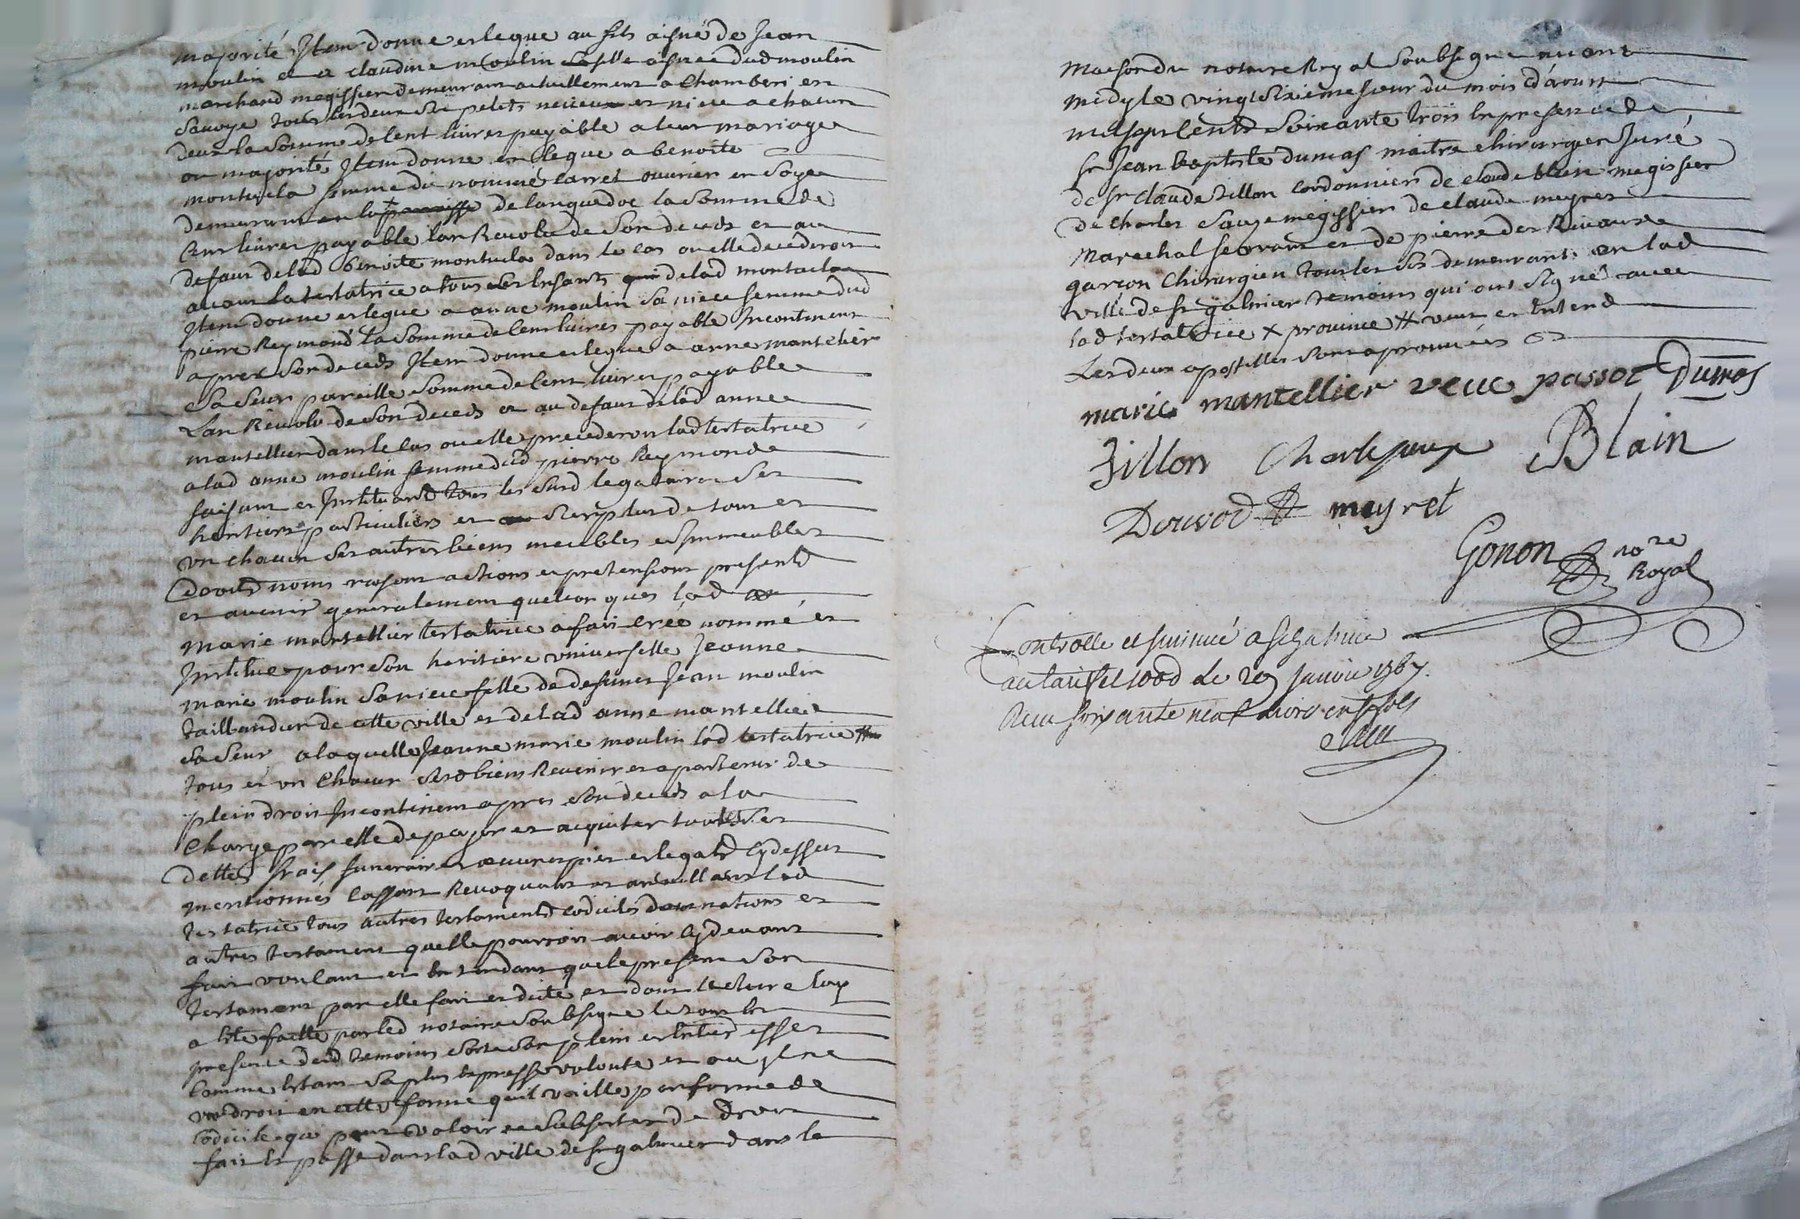 majorité Item donne et legue au fils aisné de Jean
moulin et a claudine moulin sa fille aisnée dud moulin
marchand megissier demeurant actuellement a Chamberi en
Savoye tous les deux ses petits neveux et niece a chacun
deux la somme de Cent livres payable a leur mariage
ou majorité Item donne et legue a benoite
montuela femme du nommé Carret ouvrier en Soye
demeurant en la de languedoc la somme de
Cent livres payable lan Revolu de son deceds et au
defaut de lad benoite montuela dans le cas ou elle decederoit
avant la testatrice a tous les Enfants de lad montuela
Item donne et legue a anne moulin sa niece femme dud
pierre Reymond la somme de Cent livres payable Incontinent
apres son deceds Item donne et legue a anne mantelier
sa seur pareille somme de Cent livres payable
Lan Revolu de son deceds et au defaut de lad anne
mantellier dans le cas ou elle precederoit lad testatrice
a lad anne moulin femme dud pierre Reymond
faisant et Instituant tous les susd legataires ses
heritiers particuliers et au Surplus de tous et
un chacun ses autres biens meubles et Immeubles
Droits noms raisons actions et pretensions presents
et avenir generalement quelconques lad
marie mantellier testatrice a fait créé nommé et
Institue pour son heritiere universelle Jeanne
marie moulin sa niece fille de defunct Jean moulin
taillandier de cette ville et de lad anne mantellier
sa seur a laquelle Jeanne marie moulin lad testatrice #
tous et un Chacun ses biens Revenir et apartenir de
plein droit Incontinent apres son deceds a la
Charge par elle de payer et acquiter toutes ses
dettes frais funeraires œuvres pies et legats Cydessus
mentionnés Cassant Revoquant et annullant lad
testatrice tous autres testaments Codiciles donnations et
autres testament quelle pourroit avoir Cydevant
fait voulant et Entendant que le present son
testament par elle fait et dicté et dont lecture luy
a ete faitte par led notaire soubsigné le tout En
presence desd temoins sorte son plein et Entier effet
Comme Estant sa plus Expresse volonté et ou il ne
vaudroit en cette forme quil vaille par forme de
Codicile que peut valoir et subsister de droit
fait Et passé dans lad ville de St galmier dans la
maison du notaire Royal soubsigné avant
midy le vingt sixieme jour du mois d'aoust
mil sept Cents soixante trois En presence de
Sr Jean baptiste dumas maitre chirurgien Juré
de Sr Claude Zillon Cordonnier de claude blein megissier
de Charles sauze megissier de Claude meyret
marechal ferrant et de pierre des Rivaux
garçon Chirurgien tous les six demeurants en lad
ville de St galmier temoins qui ont signé avec
lad testatrice x province # veut et Entend
Les deux apostilles sont aprouvées
marie mantellier veuve passot Dumas
Zillon Charle sauze Blain
meyret
Gonon nore
Royal
Controllé et Insinué a St galmier
Janvier 1767.
Receu soixante neuf livres